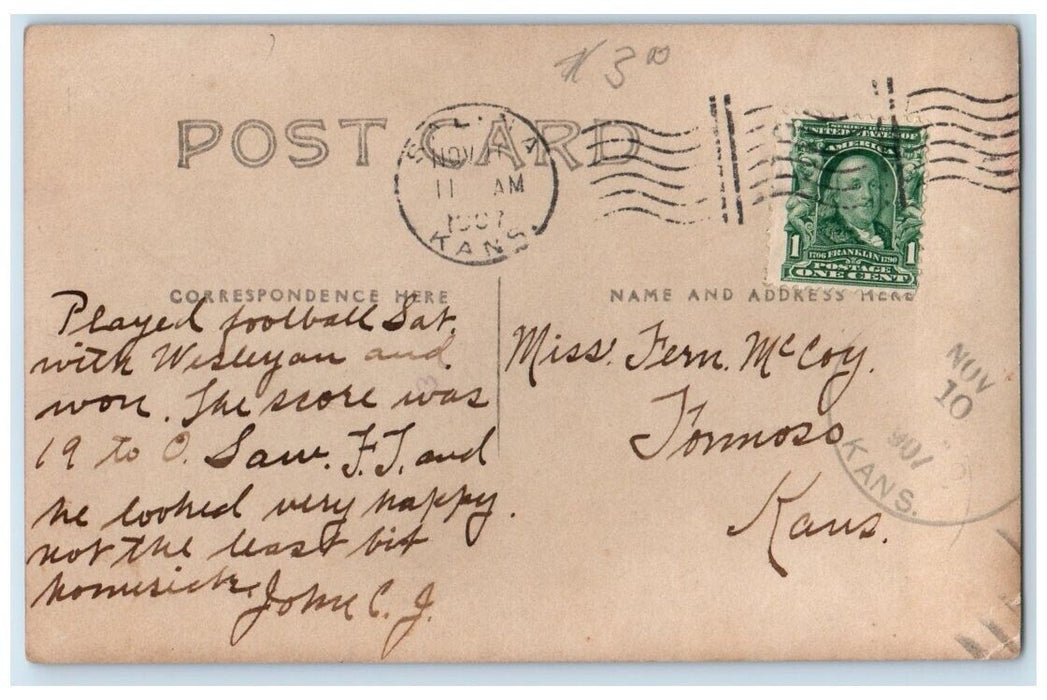 $ 3.00
POST CARD
SALINA
NOV
11 AM
1907
KANS.
SERIES 1902
UNITED STATES OF
AMERICA
1 1
1706 FRANKLIN 1790
POSTAGE
ONE CENT
CORRESPONDENCE HERE
Played football Sat.
with Wesleyan and
won. The score was
19 to 0. Saw. F. T. and
he looked very happy.
not the least bit
homesick. John C. J.
NAME AND ADDRESS HERE
Miss. Fern. McCoy.
Formoso
Kans.
NOV
10
KANS.